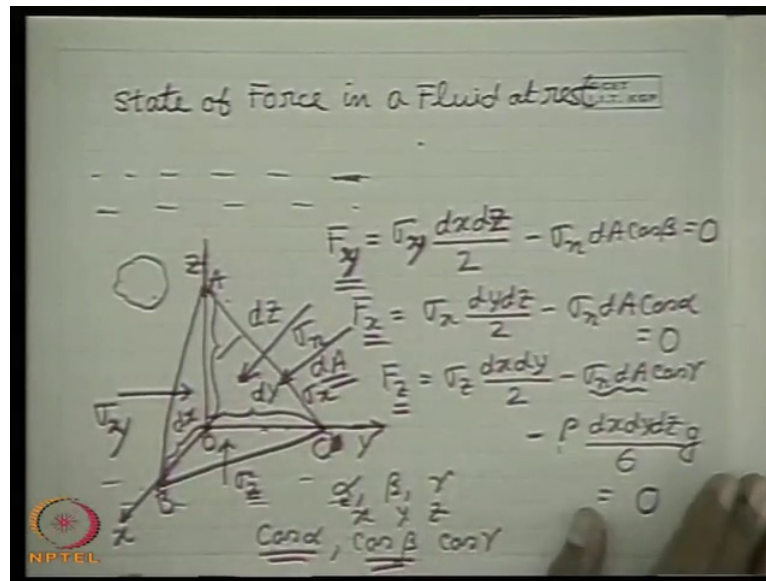 State of Force in a Fluid at rest
I.I.T. KGP
F_xy = σ_xy dxdz/2 - σ_n dA cosβ = 0
F_x = σ_x dydz/2 - σ_n dA cosα
= 0
F_z = σ_z dxdy/2 - σ_n dA cosγ
- ρ dxdydz/6 g
= 0
Z
A
dz
σ_n
dA
σ_x
dy
dx
σ_xy
O
C
y
B
σ_z
x
α, β, γ
x y z
cosα, cosβ cosγ
NPTEL